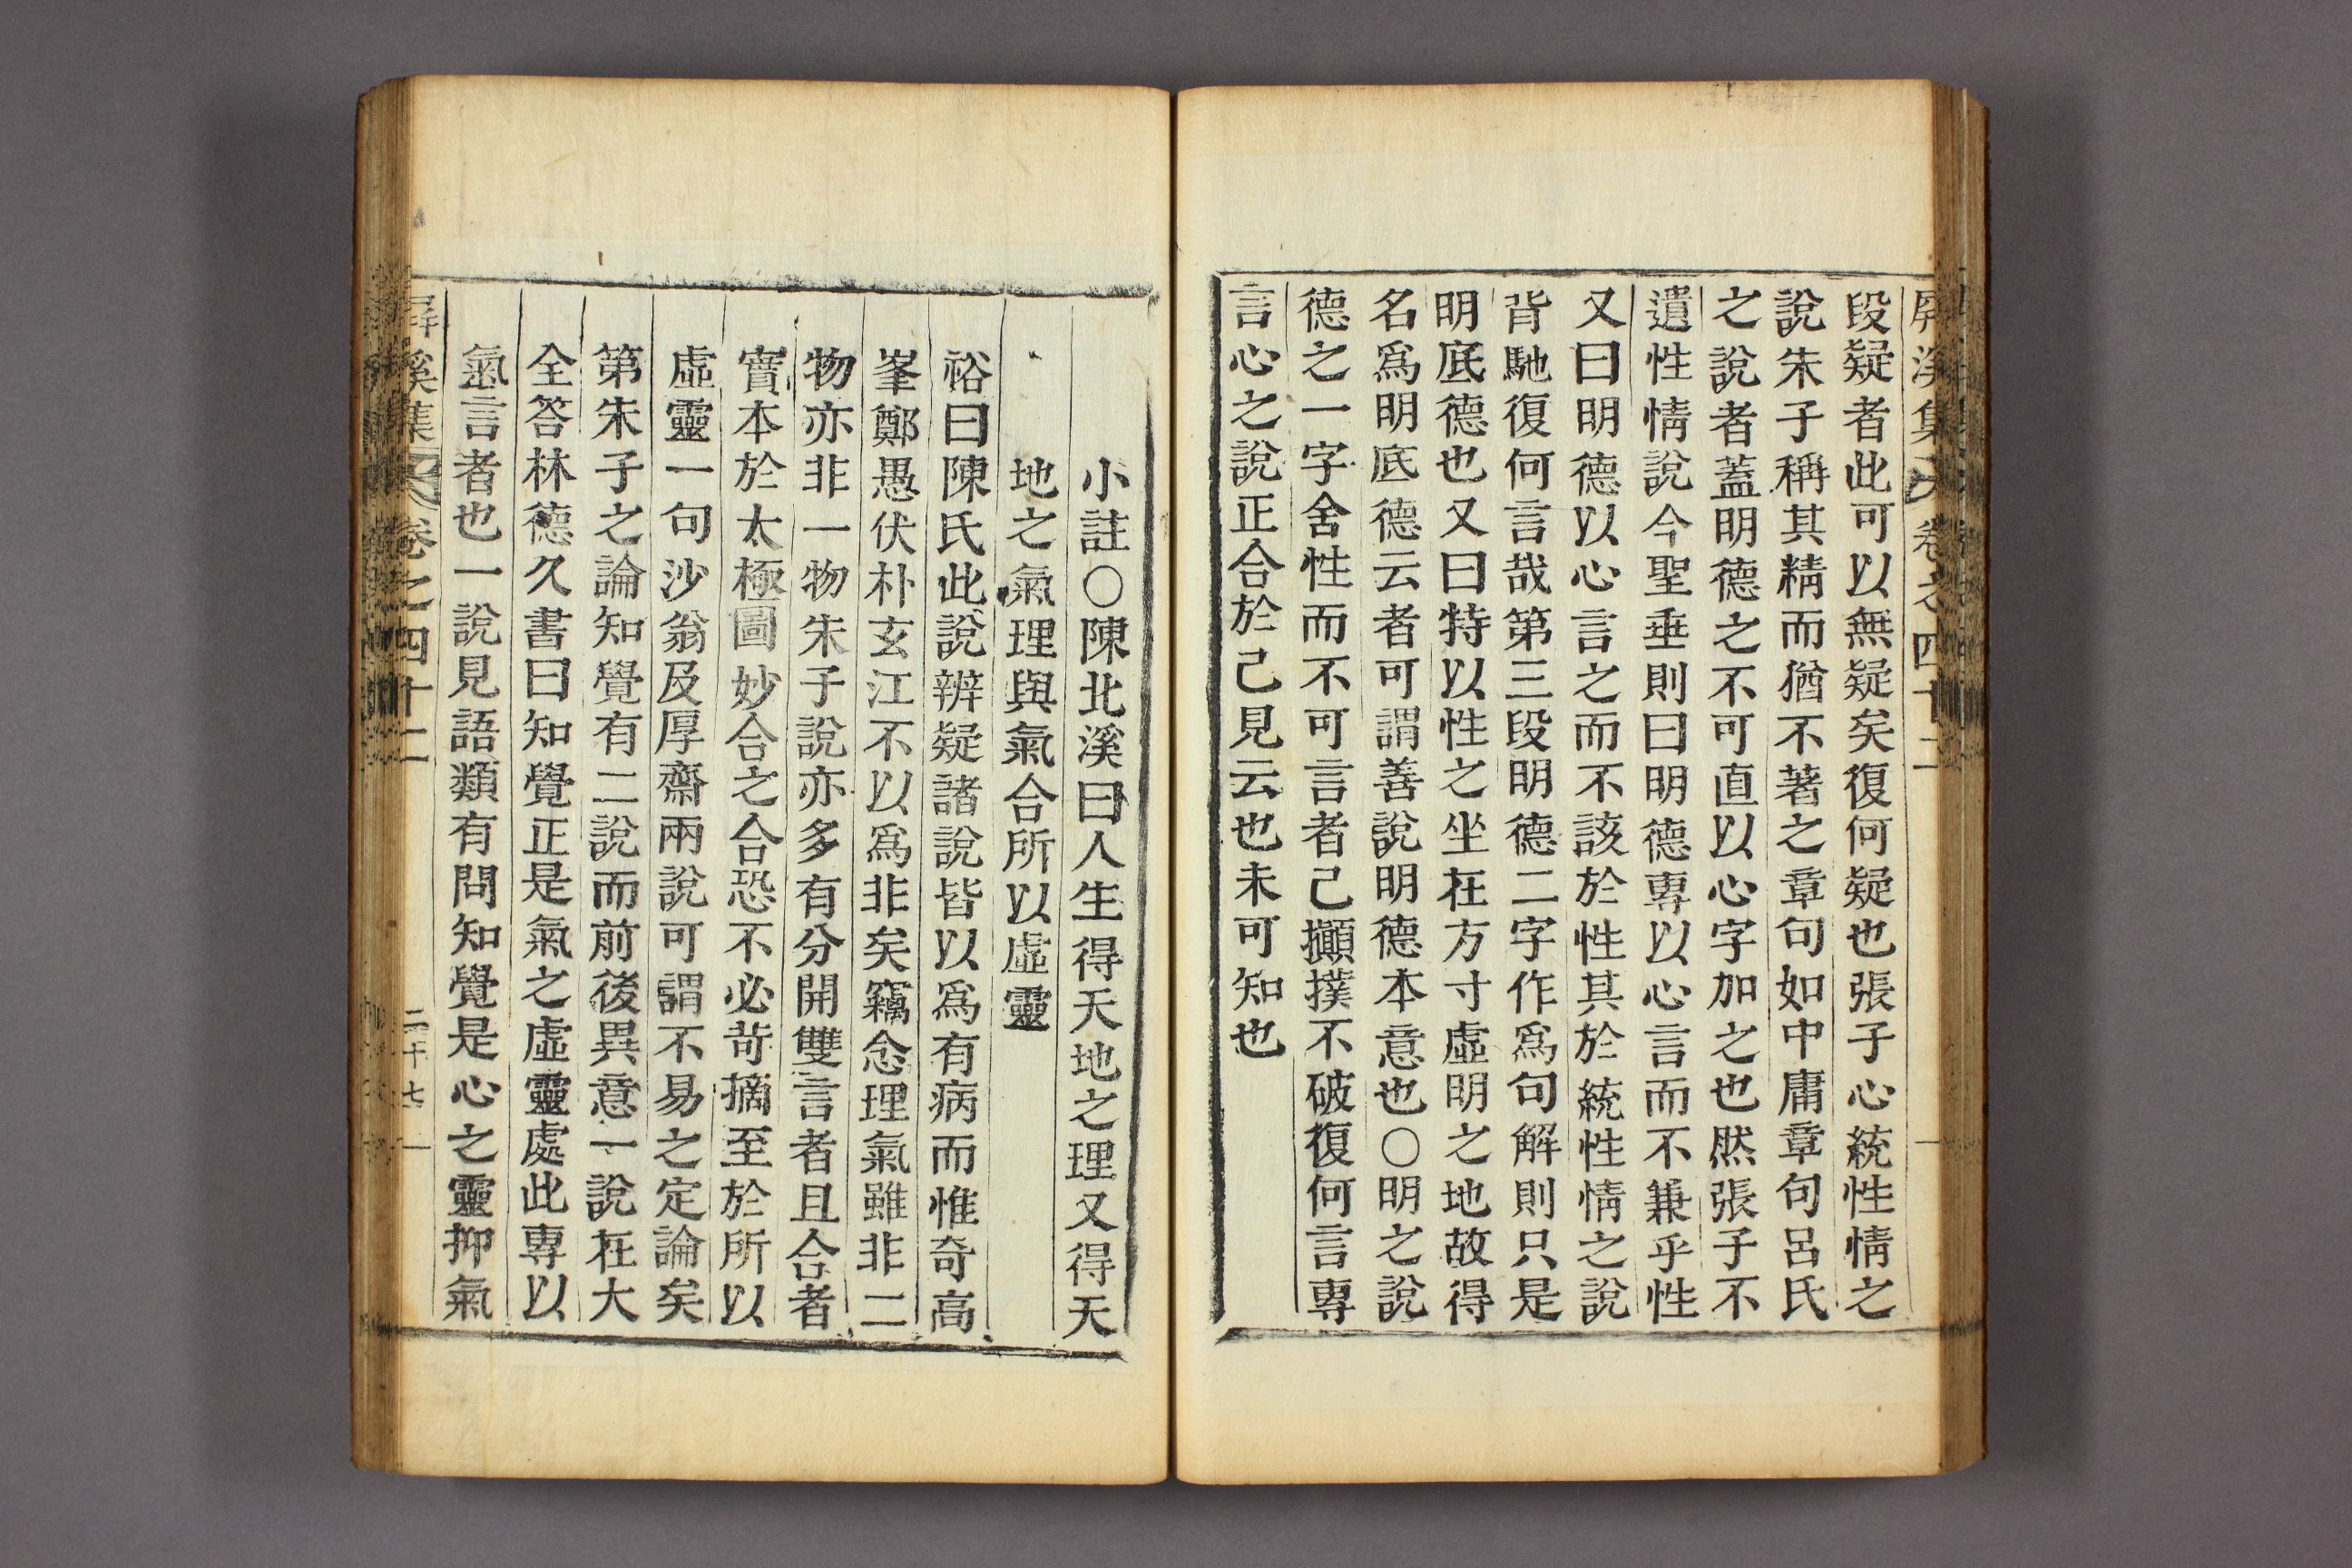 屛溪集 卷之四十二
段疑者此可以無疑矣復何疑也張子心統性情之
說朱子稱其精而猶不著之章句如中庸章句呂氏
之說者蓋明德之不可直以心字加之也然張子不
遺性情說今聖垂則曰明德專以心言而不兼乎性
又曰明德以心言之而不該於性其於統性情之說
背馳復何言哉第三段明德二字作爲句解則只是
明底德也又曰特以性之坐在方寸虛明之地故得
名爲明底德云者可謂善說明德本意也○明之說
德之一字舍性而不可言者已攧撲不破復何言專
言心之說正合於己見云也未可知也
小註○陳北溪曰人生得天地之理又得天
地之氣理與氣合所以虛靈
裕曰陳氏此說辨疑諸說皆以爲有病而惟奇高
峯鄭愚伏朴玄江不以爲非矣竊念理氣雖非二
物亦非一物朱子說亦多有分開雙言者且合者
實本於太極圖妙合之合恐不必苛摘至於所以
虛靈一句沙翁及厚齋兩說可謂不易之定論矣
第朱子之論知覺有二說而前後異意一說在大
全答林德久書曰知覺正是氣之虛靈處此專以
氣言者也一說見語類有問知覺是心之靈抑氣
屛溪集 卷之四十二 二十七